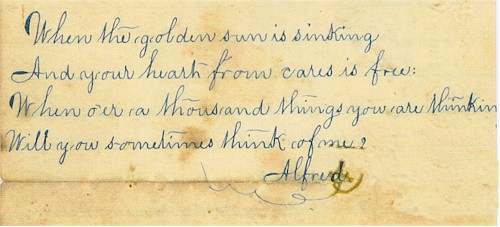 When the golden sun is sinking
And your heart from cares is free:
When o'er a thousand things you are thinkin
Will you sometimes think of me?
Alfred.